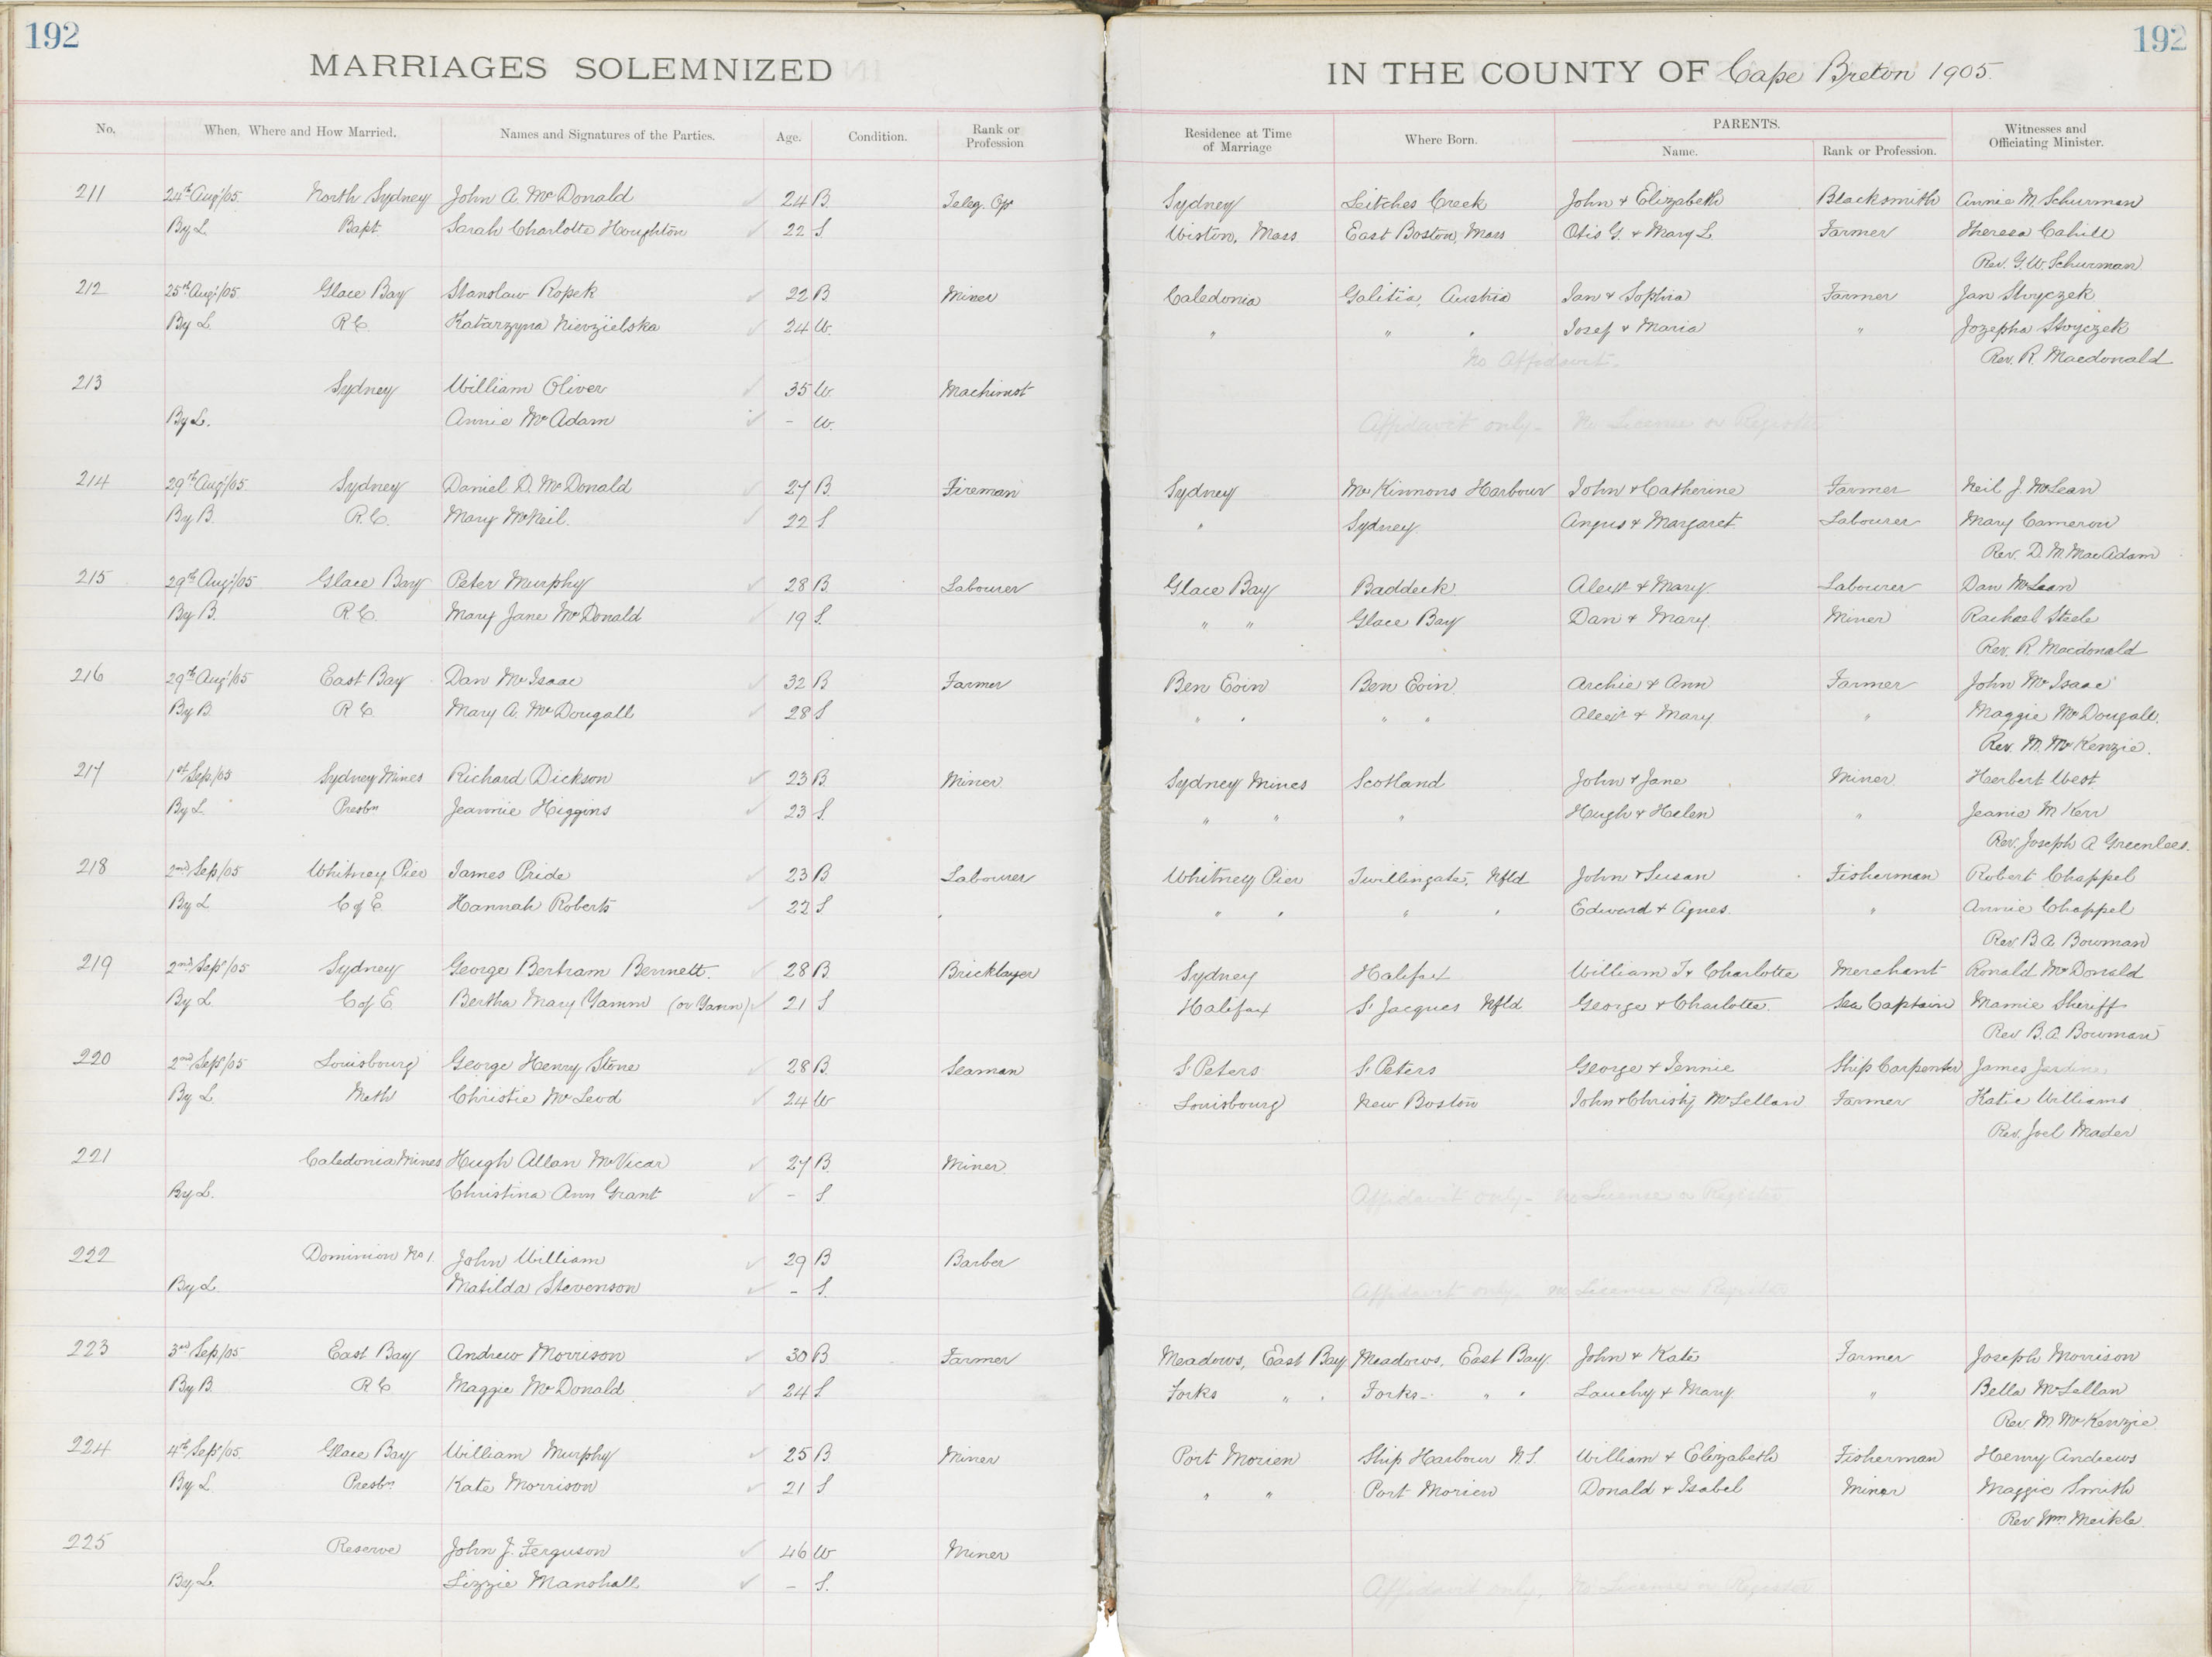 192
192
MARRIAGES SOLEMNIZED
IN THE COUNTY OF Cape Breton 1905.
No. When, Where and How Married. Names and Signatures of the Parties. Age. Condition. Rank or Profession Residence at Time of Marriage Where Born. PARENTS. Name. Rank or Profession. Witnesses and Officiating Minister.
211 24th Aug/05 North Sydney John A. McDonald 24 B. Teleg. Op Sydney Leitches Creek John & Elizabeth Blacksmith Annie M. Schurman
By L. Bapt. Sarah Charlotte Houghton 22 S. Wiston, Mass East Boston, Mass Otis G. & Mary L. Farmer Theresa Cahill
Rev. G. W. Schurman
212 25th Aug/05 Glace Bay Stanslaw Ropek 22 B Miner Caledonia Galitia, Austria Jan & Sophia Farmer Jan Stvyczek
By L. R C. Katarzyna Nievzielska 24 W. " " " Josef & Maria " Jozepha Stvyczek
No Affidavit. Rev. R. Macdonald
213 Sydney William Oliver 35 W. Machinist
By L. Annie McAdam - W. Affidavit only - No License or Register
214 29th Aug/05 Sydney Daniel D. McDonald 27 B. Fireman Sydney McKinnons Harbour John & Catherine Farmer Neil J. McLean
By B. R.C. Mary McNeil. 22 S. " Sydney. Angus & Margaret. Labourer Mary Cameron
Rev. D. M. MacAdam
215 29th Aug/05 Glace Bay Peter Murphy 28 B. Labourer Glace Bay Baddeck Alexr & Mary. Labourer Dan McLean
By B. R C. Mary Jane McDonald 19 S. " " Glace Bay Dan & Mary. Miner Rachael Steele
Rev. R. Macdonald
216 29th Aug/05 East Bay Dan McIsaac 32 B Farmer Ben Eoin Ben Eoin. Archie & Ann Farmer John McIsaac
By B. R C. Mary A. McDougall 28 S " " " " Alexr & Mary " Maggie McDougall.
Rev. M. McKenzie.
217 1st Sep/05 Sydney Mines Richard Dickson 23 B. Miner Sydney Mines Scotland John & Jane Miner. Herbert West
By L. Presbn Jeannie Higgins 23 S. " " " Hugh & Helen " Jeanie M. Kerr
Rev. Joseph A. Greenlees.
218 2nd Sep/05 Whitney Pier James Pride 23 B Labourer Whitney Pier Twillingate, Nfld John & Susan Fisherman Robert Chappel
By L C of E. Hannah Roberts 22 S. " " " " Edward & Agnes. " Annie Chappel
Rev. B. A. Bowman
219 2nd Sep/05 Sydney George Bertram Bennett. 28 B. Bricklayer Sydney Halifax William T. & Charlotte Merchant Ronald McDonald
By L. C of E. Bertha Mary Yamm (or Yann) 21 S Halifax St Jacques Nfld George & Charlotte. Sea Captain Mamie Sheriff
Rev B. A. Bowman
220 2nd Sep/05 Louisbourg George Henry Stone 28 B. Seaman St Peters St Peters George & Jennie Ship Carpenter James Jardine.
By L. Meth Christie McLeod 24 W Louisbourg New Boston John & Christy McLellan Farmer Katie Williams
Rev. Joel Mader
221 Caledonia Mines Hugh Allan McVicar 27 B. Miner.
By L. Christina Ann Grant - S. Affidavit only - No License or Register
222 Dominion No 1. John William 29 B Barber
By L. Matilda Stevenson - S. Affidavit only - no License or Register
223 3rd Sep/05 East Bay Andrew Morrison 30 B. Farmer Meadows, East Bay Meadows, East Bay. John & Kate Farmer Joseph Morrison
By B. R C. Maggie McDonald 24 S Forks " " Forks - " " Lauchy & Mary. " Bella McLellan
Rev. M. McKenzie
224 4th Sep/05. Glace Bay William Murphy 25 B. Miner Port Morien Ship Harbour N.S. William & Elizabeth Fisherman Henry Andrews
By L. Presbn Kate Morrison 21 S " " Port Morien Donald & Isabel Miner Maggie Smith
Rev. Wm. Meikle.
225 Reserve John J. Ferguson 46 W Miner
By L. Lizzie Marshall - S. Affidavit only - No License or Register